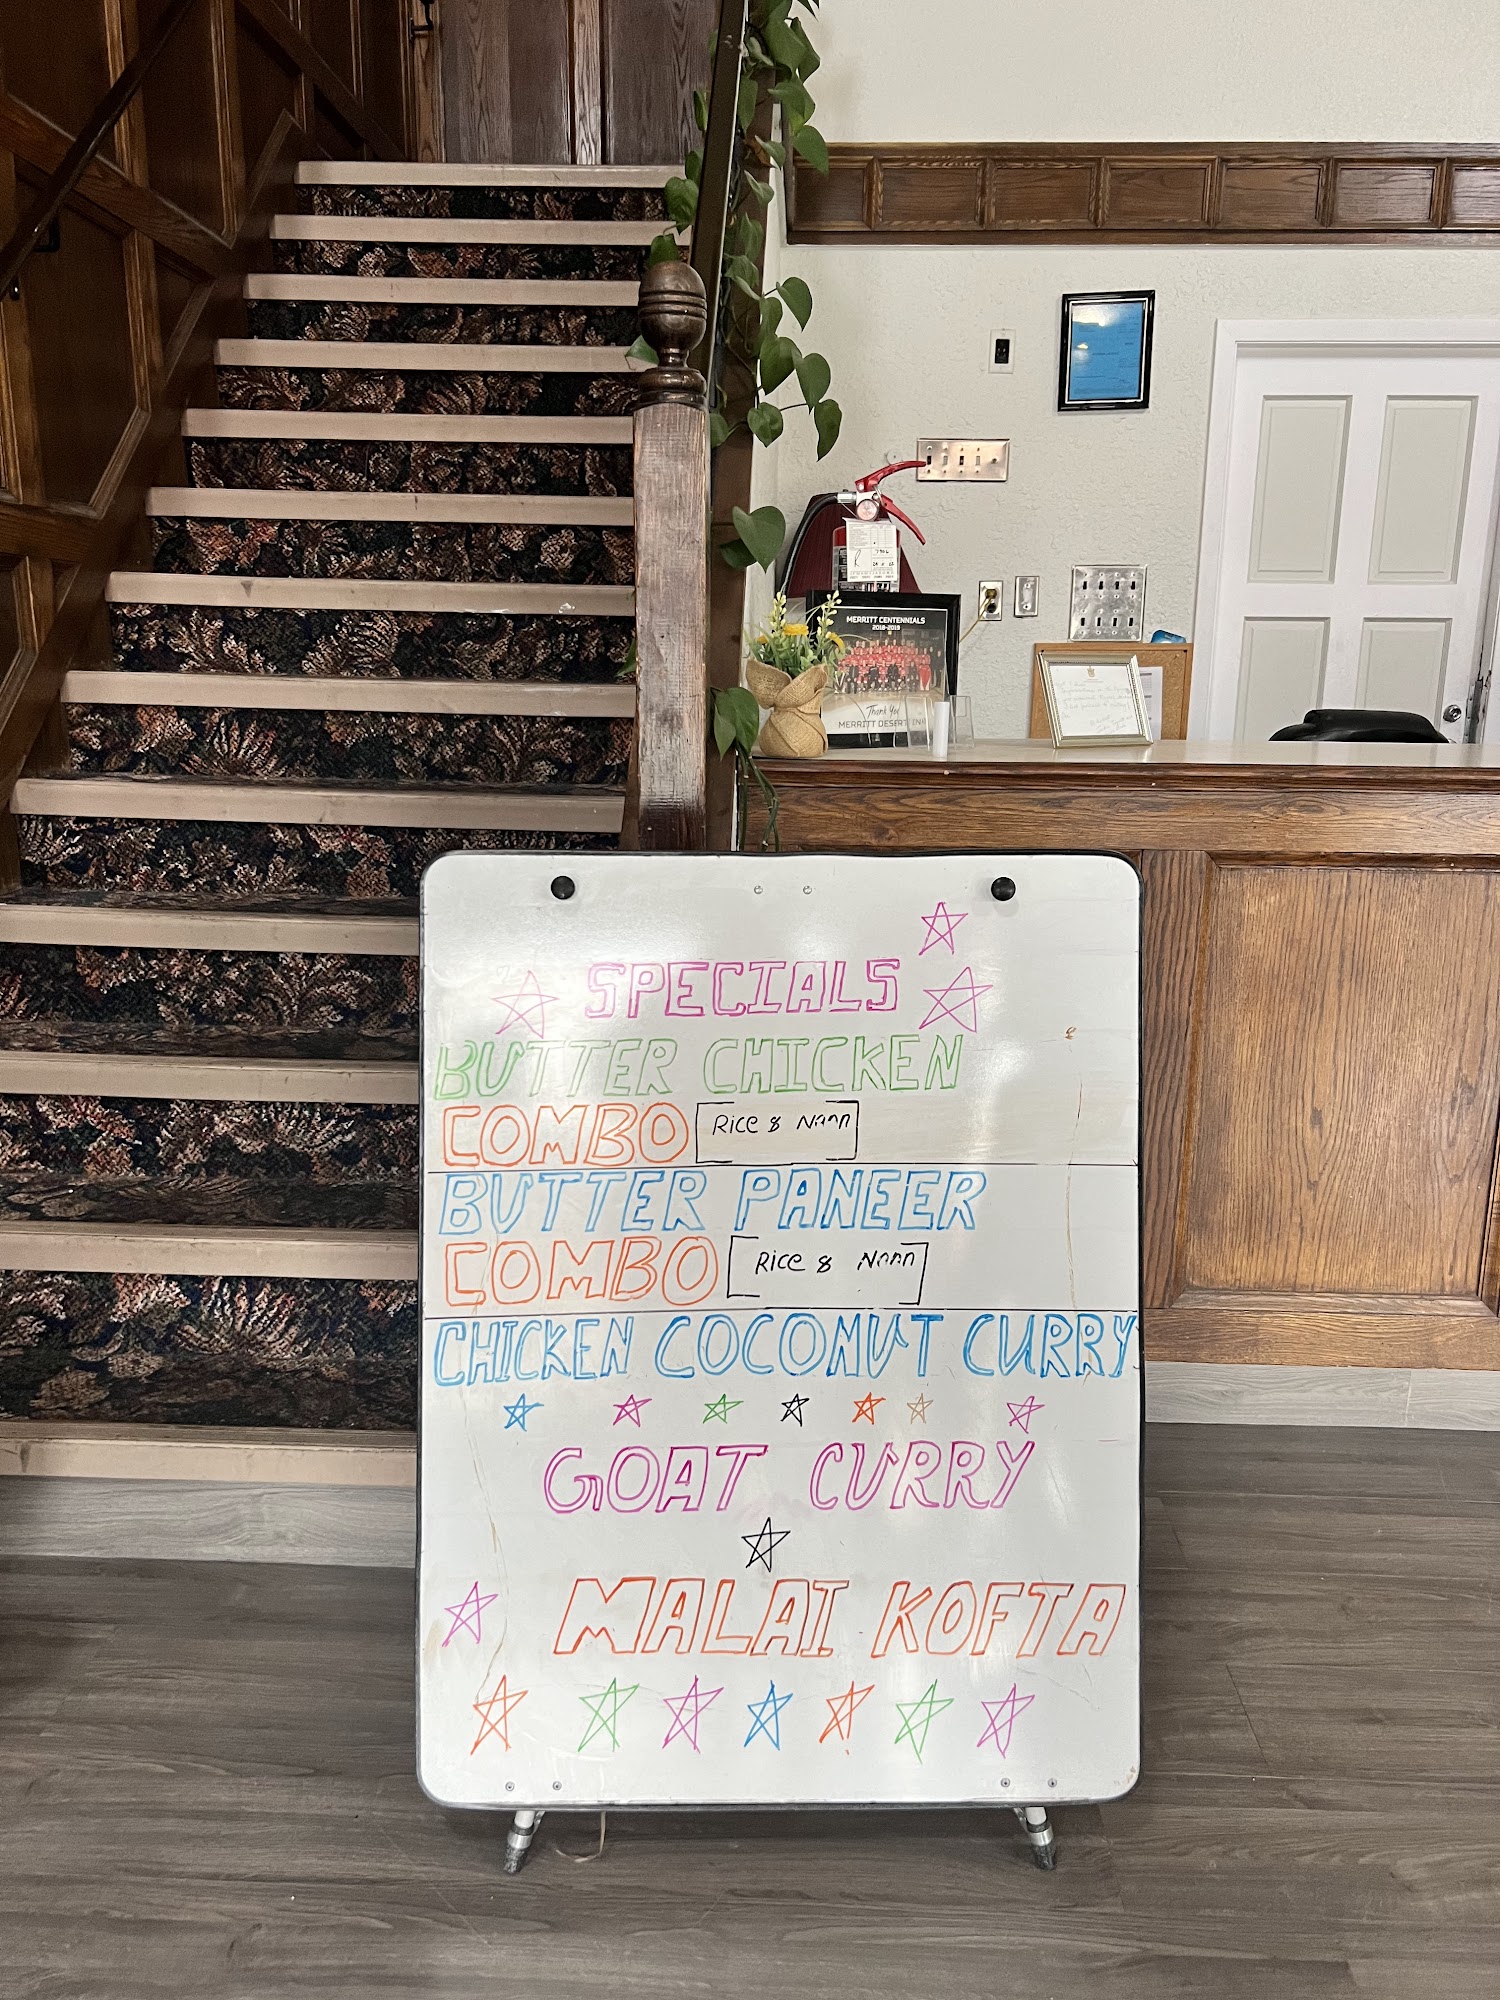 MERRITT CENTENNIALS
2018-2019
Thank You
MERRITT DESERT INN
SPECIALS
BUTTER CHICKEN
COMBO [Rice & Naan]
BUTTER PANEER
COMBO [Rice & Naan]
CHICKEN COCONUT CURRY
GOAT CURRY
MALAI KOFTA